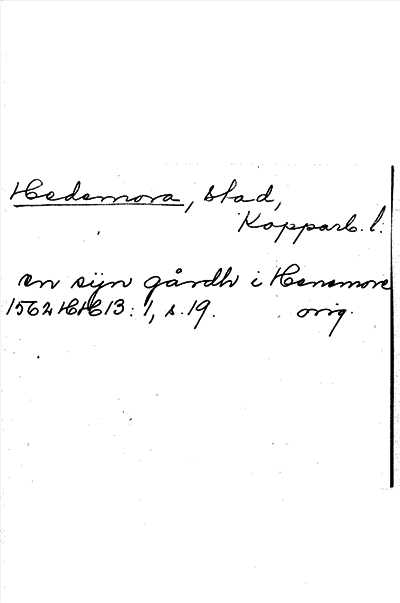 Hedemora, stad,
Kopparb. l.
en sijn gårdh i Henemore
1562 HH 13:1, s. 19. orig.